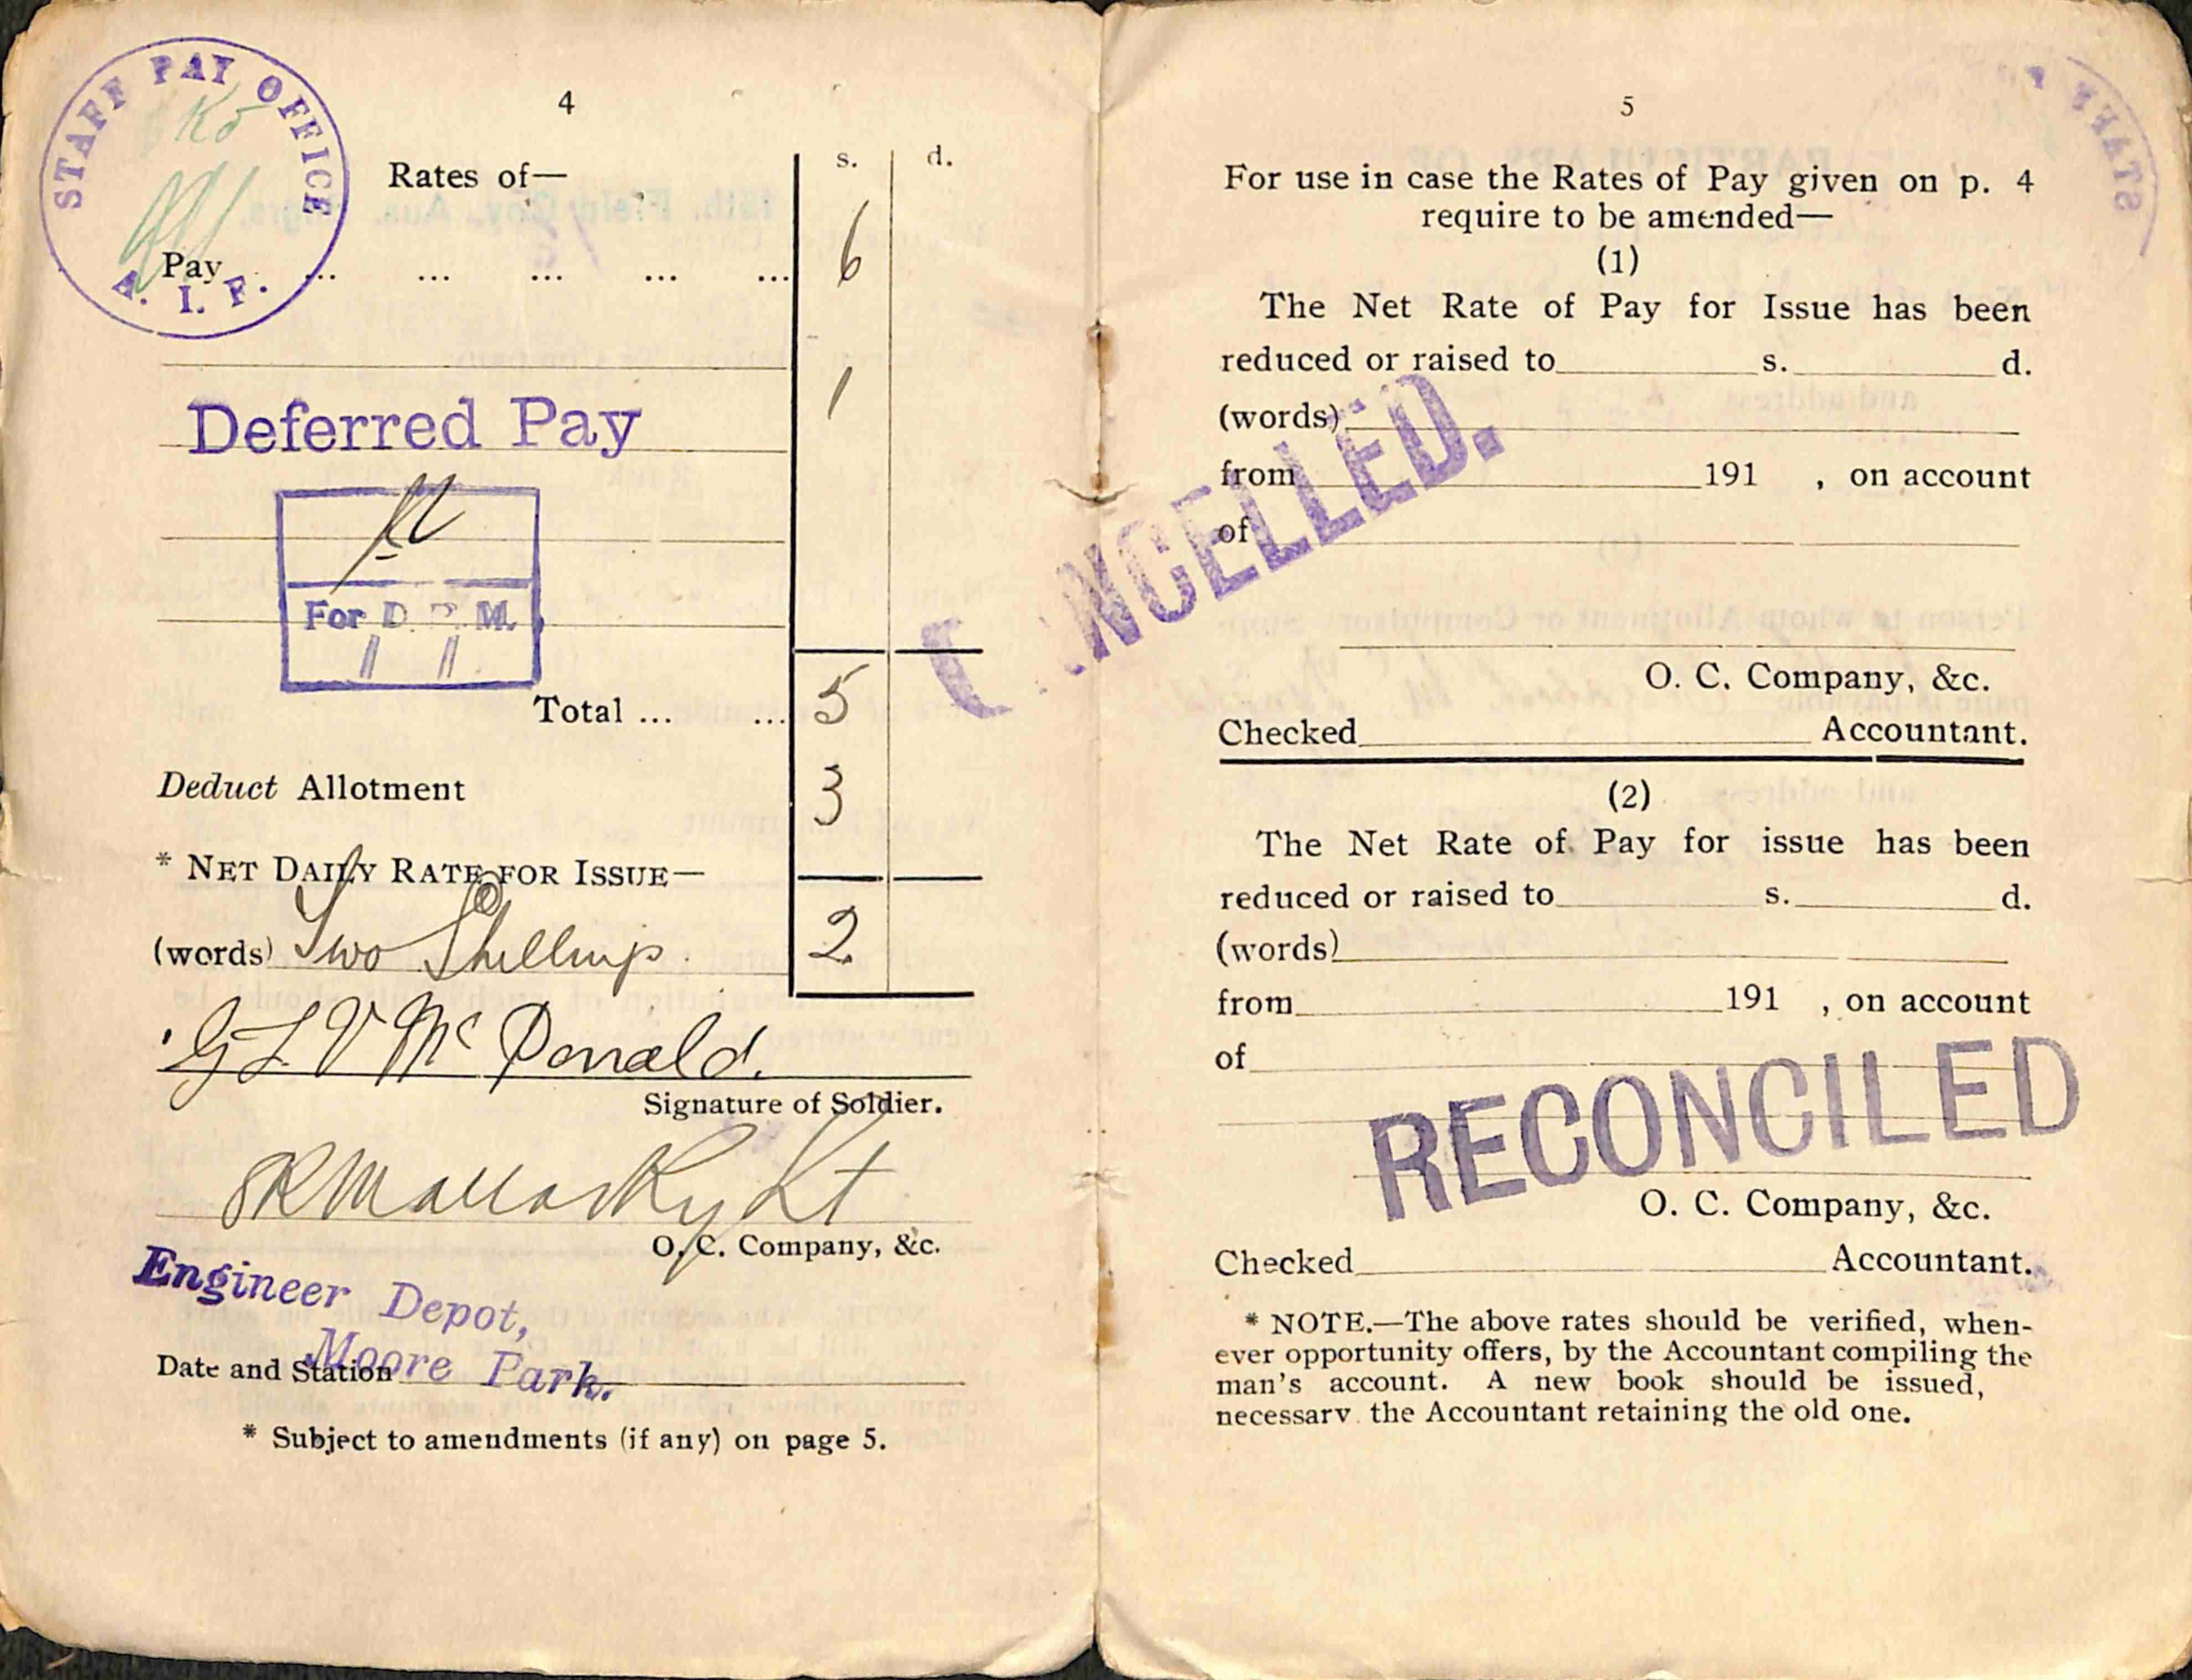 STAFF PAY OFFICE
A. I. F.
4
Rates of—
s. d.
Pay ... ... ... ... ... 6
Deferred Pay 1
For D. M.
Total ... ... 5
Deduct Allotment 3
* NET DAILY RATE FOR ISSUE—
(words) Two Shillings 2
G L V McDonald.
Signature of Soldier.
Lt
O. C. Company, &c.
Engineer Depot,
Moore Park.
Date and Station
* Subject to amendments (if any) on page 5.
5
STAFF
For use in case the Rates of Pay given on p. 4
require to be amended—
(1)
The Net Rate of Pay for Issue has been
reduced or raised to s. d.
(words)
from 191 , on account
of
NCELLED.
O. C. Company, &c.
Checked Accountant.
(2)
The Net Rate of Pay for issue has been
reduced or raised to s. d.
(words)
from 191 , on account
of
RECONCILED
O. C. Company, &c.
Checked Accountant.
* NOTE.—The above rates should be verified, when-
ever opportunity offers, by the Accountant compiling the
man's account. A new book should be issued,
necessary the Accountant retaining the old one.